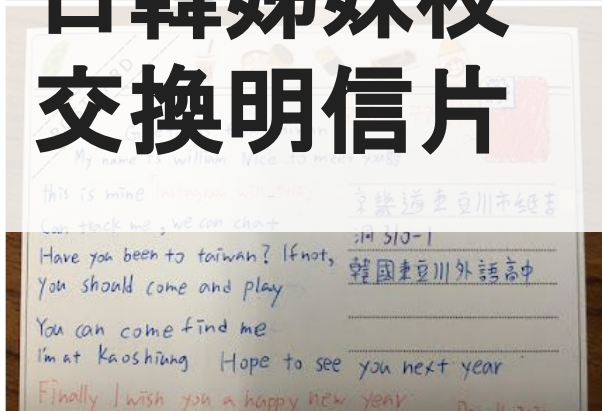 日韓姊妹校
交換明信片
My name is william Nice to meet you
this is mine
Can track me, we can chat
Have you been to taiwan? If not,
You should come and play
You can come find me
I'm at Kaoshiung Hope to see you next year
Finally I wish you a happy new year
京畿道東豆川市紙杏
洞 310-1
韓國東豆川外語高中